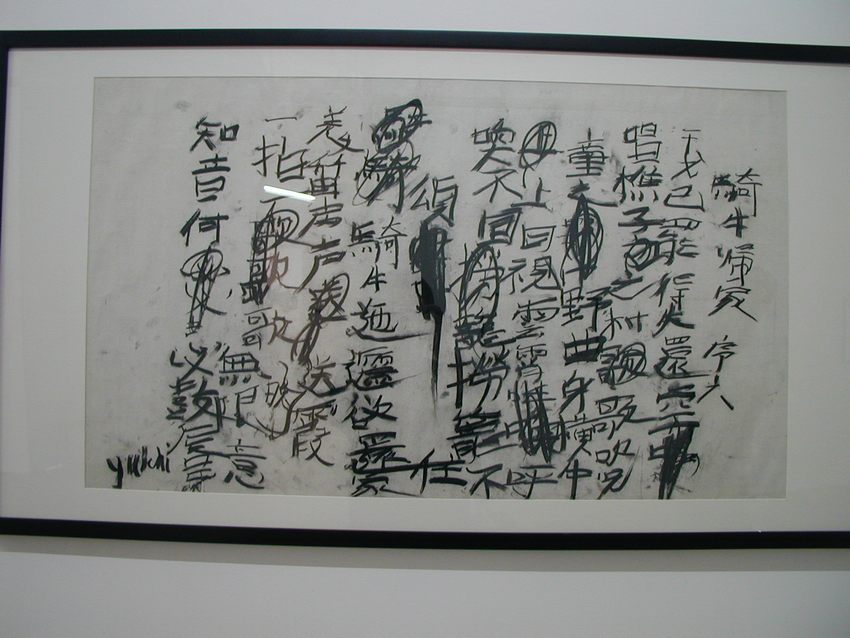 騎牛帰家 序六
干戈已罷得失還空
唱樵子之村歌吹
童野曲身横牛
上目視雲霄呼
喚不回撈籠撈籠不
頌 住
騎牛迤邐欲還家
羌笛声声送晩霞
一拍一歌無限意
知音何必鼓唇
yuichi